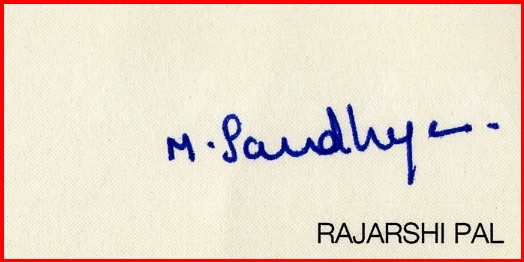 M. Sandhya.
RAJARSHI PAL